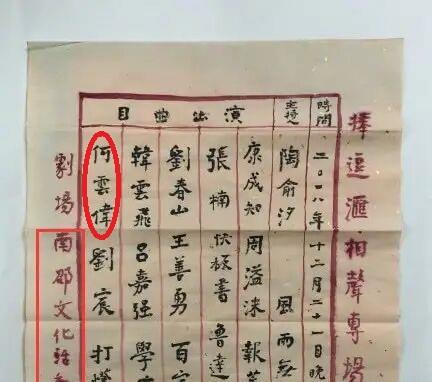 捧逗滙相聲專場
時間：二〇一八年十二月二十一日晚
主持人 陶俞汐 風雨無
演出曲目
康成知 周溢洣 報菜
張楠 快板書 魯達
劉春山 王善勇 百家
韓雲燕 呂嘉强 學
何雲偉 劉宸 打燈
劇場 南邵文化活